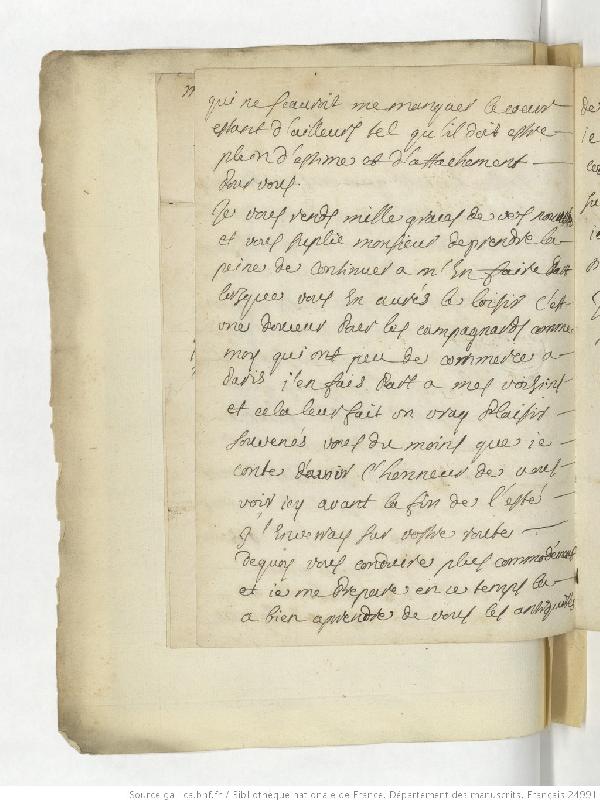 qui ne scauroit me manquer le coeur
estant d'ailleurs tel qu'il doit estre
plein d'estime et d'attachement
pour vous.
Je vous rends mille graces de vos
et vous suplie monsieur de prendre la
peine de continuer a m'En faire part
lorsque vous En aurés le loisir c'est
une douceur pour les campagnards comme
moy qui ont peu de commerce a
Paris j'en fais part a mes voisins
et cela leur fait un vray plaisir
souvenés vous du moins que ie
conte d'avoir l'honneur de vous
voir icy avant la fin de l'esté
J'Enverray sur vostre route
dequoy vous conduire plus commodément
et ie me prepare en ce temps la
a bien aprendre de vous les antiquités
de
ie
Source gallica.bnf.fr / Bibliothèque nationale de France. Département des manuscrits. Français 24991